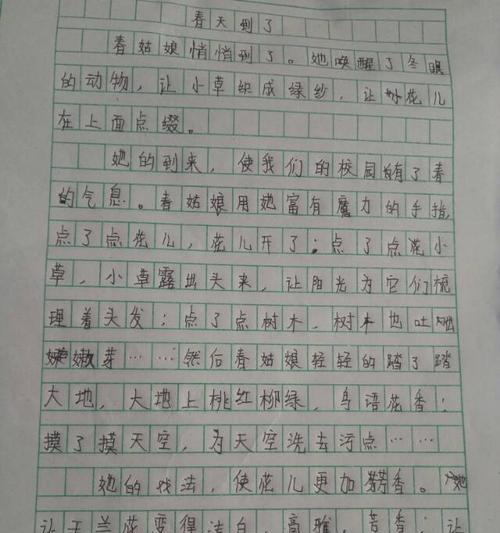 春天到了
春姑娘悄悄到了。她唤醒了冬眠
的动物，让小草织成绿纱，让小花儿
在上面点缀。
她的到来，使我们的校园有了春
的气息。春姑娘用她富有魔力的手指，
点了点花儿，花儿开了；点了点小
草，小草露出头来，让阳光为它们梳
理着头发；点了点树木，树木也吐出
嫩芽……然后春姑娘轻轻的踏了踏
大地，大地上桃红柳绿，鸟语花香；
摸了摸天空，为天空洗去污点……
她的戏法，使花儿更加芳香。她
让玉兰花变得洁白，高雅，芳香；让